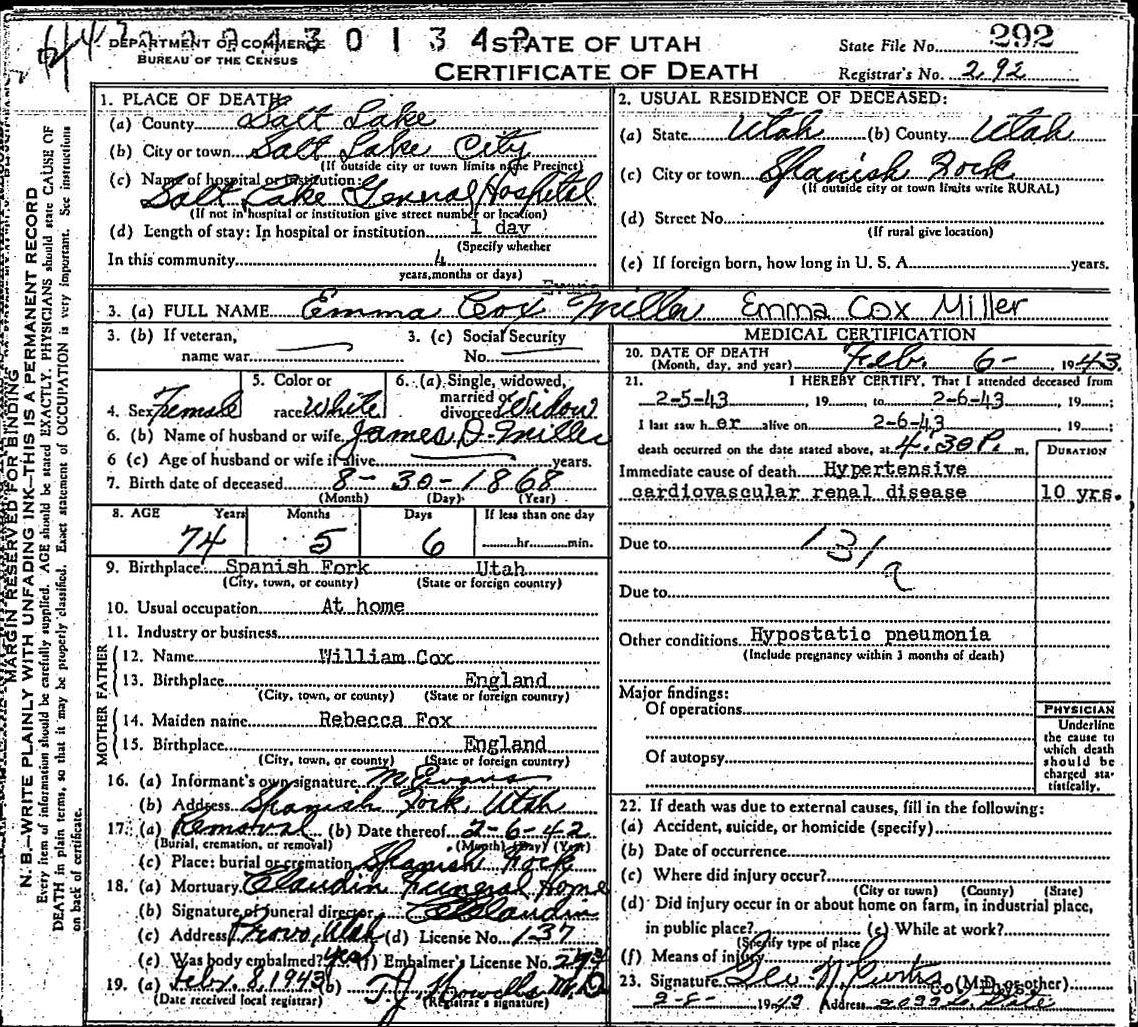 DEPARTMENT OF COMMERCE
BUREAU OF THE CENSUS
STATE OF UTAH
CERTIFICATE OF DEATH
State File No. 292
Registrar's No. 292
MARGIN RESERVED FOR BINDING
N. B.—WRITE PLAINLY WITH UNFADING INK—THIS IS A PERMANENT RECORD
Every item of information should be carefully supplied. AGE should be stated EXACTLY. PHYSICIANS should state CAUSE OF
DEATH in plain terms, so that it may be properly classified. Exact statement of OCCUPATION is very important. See instructions
on back of certificate.
1. PLACE OF DEATH:
(a) County Salt Lake
(b) City or town Salt Lake City
(If outside city or town limits name Precinct)
(c) Name of hospital or institution:
Salt Lake General Hospital
(If not in hospital or institution give street number or location)
(d) Length of stay: In hospital or institution 1 day
(Specify whether
In this community 4
years, months or days)
2. USUAL RESIDENCE OF DECEASED:
(a) State Utah (b) County Utah
(c) City or town Spanish Fork
(If outside city or town limits write RURAL)
(d) Street No.
(If rural give location)
(e) If foreign born, how long in U. S. A. years.
Evans
3. (a) FULL NAME Emma Cox Miller Emma Cox Miller
3. (b) If veteran,
name war
3. (c) Social Security
No.
4. Sex Female
5. Color or
race White
6. (a) Single, widowed,
married or
divorced Widow
6. (b) Name of husband or wife James D. Miller
6 (c) Age of husband or wife if alive years.
7. Birth date of deceased 8-30-1868
(Month) (Day) (Year)
8. AGE Years Months Days If less than one day
74 5 6 hr. min.
9. Birthplace Spanish Fork Utah
(City, town, or county) (State or foreign country)
10. Usual occupation At home
11. Industry or business
FATHER
12. Name William Cox
13. Birthplace England
(City, town, or county) (State or foreign country)
MOTHER
14. Maiden name Rebecca Fox
15. Birthplace England
(City, town, or county) (State or foreign country)
16. (a) Informant's own signature M. Evans
(b) Address Spanish Fork, Utah
17. (a) Removal (b) Date thereof 2-6-42
(Burial, cremation, or removal) (Month) (Day) (Year)
(c) Place: burial or cremation Spanish Fork
18. (a) Mortuary Claudin Funeral Home
(b) Signature of funeral director Claudin
(c) Address Provo, Utah (d) License No. 137
(e) Was body embalmed? yes (f) Embalmer's License No.
19. (a) Febr. 8, 1943 (b) T.J. Howells M.D
(Date received local registrar) (Registrar's signature)
MEDICAL CERTIFICATION
20. DATE OF DEATH
(Month, day, and year) Feb. 6- 1943.
21. I HEREBY CERTIFY, That I attended deceased from
2-5-43, 19 to 2-6-43, 19 ;
I last saw h er alive on 2-6-43, 19 ;
death occurred on the date stated above, at 4:30 P. m.
DURATION
Immediate cause of death Hypertensive
cardiovascular renal disease 10 yrs.
Due to 131a
Due to
Other conditions Hypostatic pneumonia
(Include pregnancy within 3 months of death)
Major findings:
Of operations
Of autopsy
PHYSICIAN
Underline
the cause to
which death
should be
charged sta-
tistically.
22. If death was due to external causes, fill in the following:
(a) Accident, suicide, or homicide (specify)
(b) Date of occurrence
(c) Where did injury occur?
(City or town) (County) (State)
(d) Did injury occur in or about home on farm, in industrial place,
in public place? (e) While at work?
(Specify type of place
(f) Means of injury
23. Signature Geo N. Curtis (M.D. or other)
Address